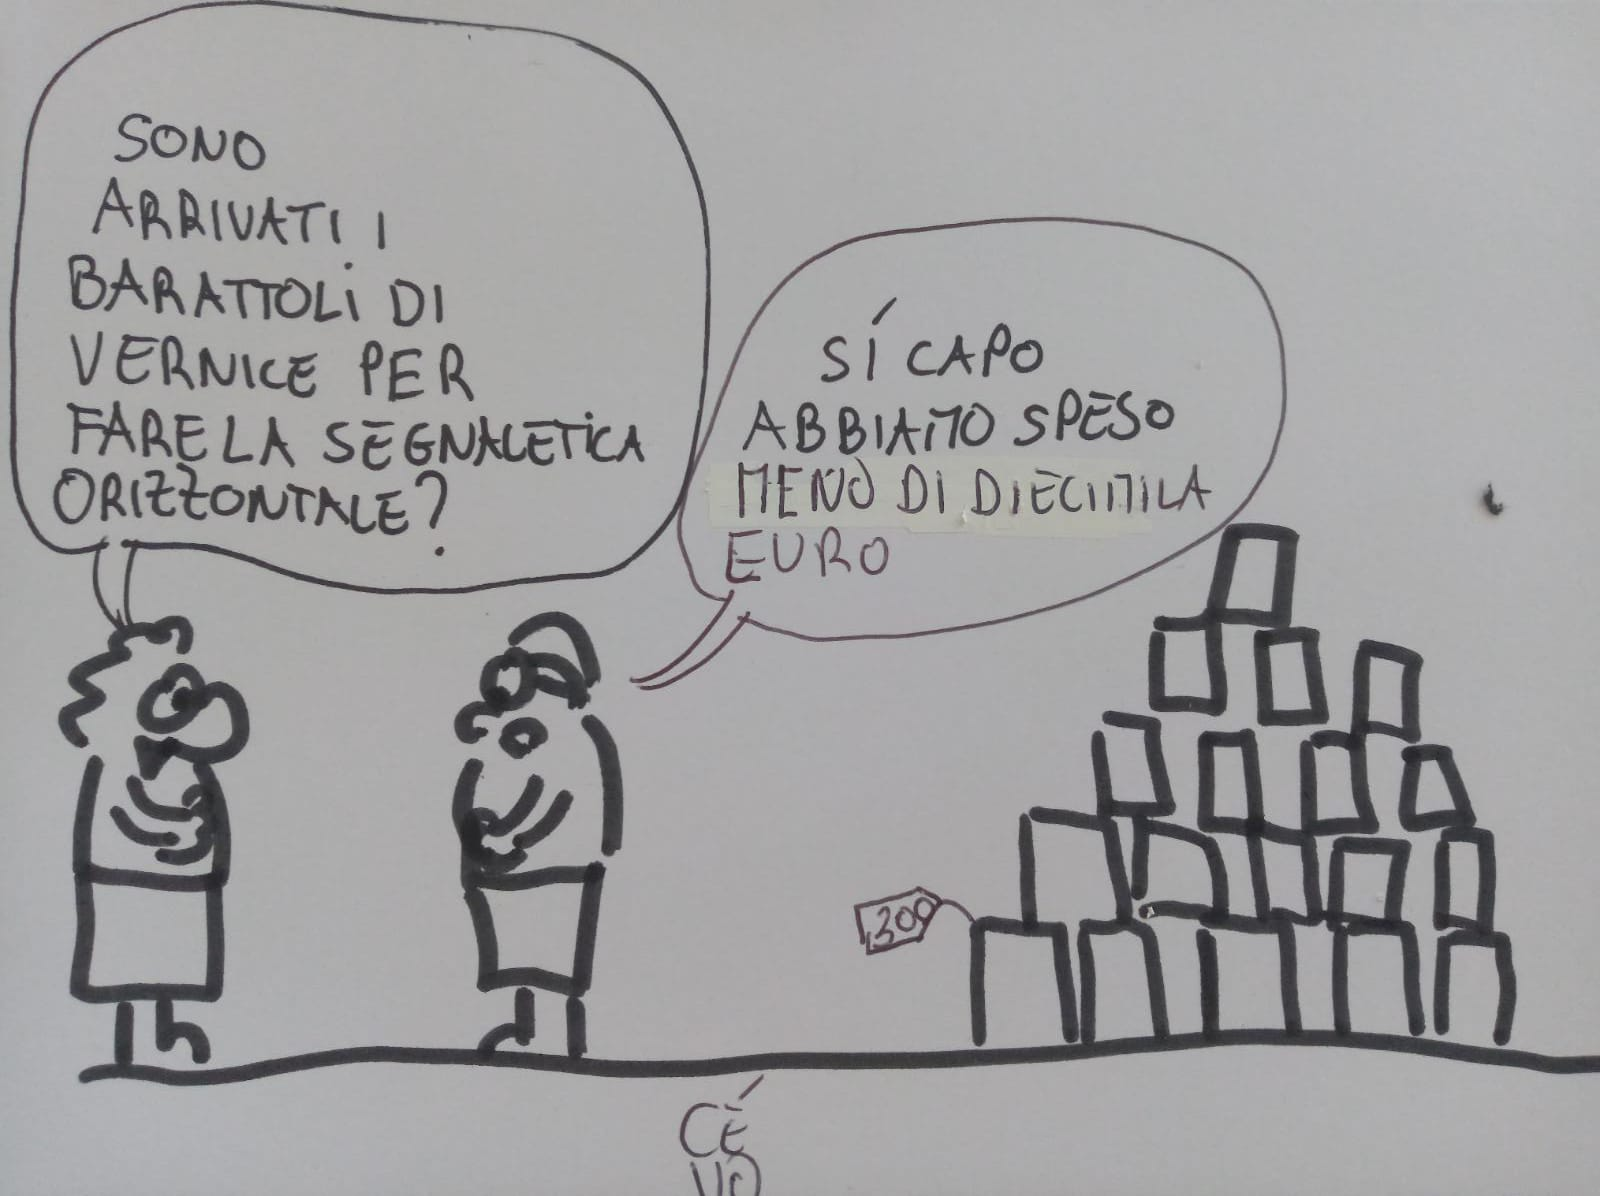 SONO
ARRIVATI I
BARATTOLI DI
VERNICE PER
FARE LA SEGNALETICA
ORIZZONTALE?
SÍ CAPO
ABBIAMO SPESO
MENO DI DIECIMILA
EURO
300
CÉ
VÒ